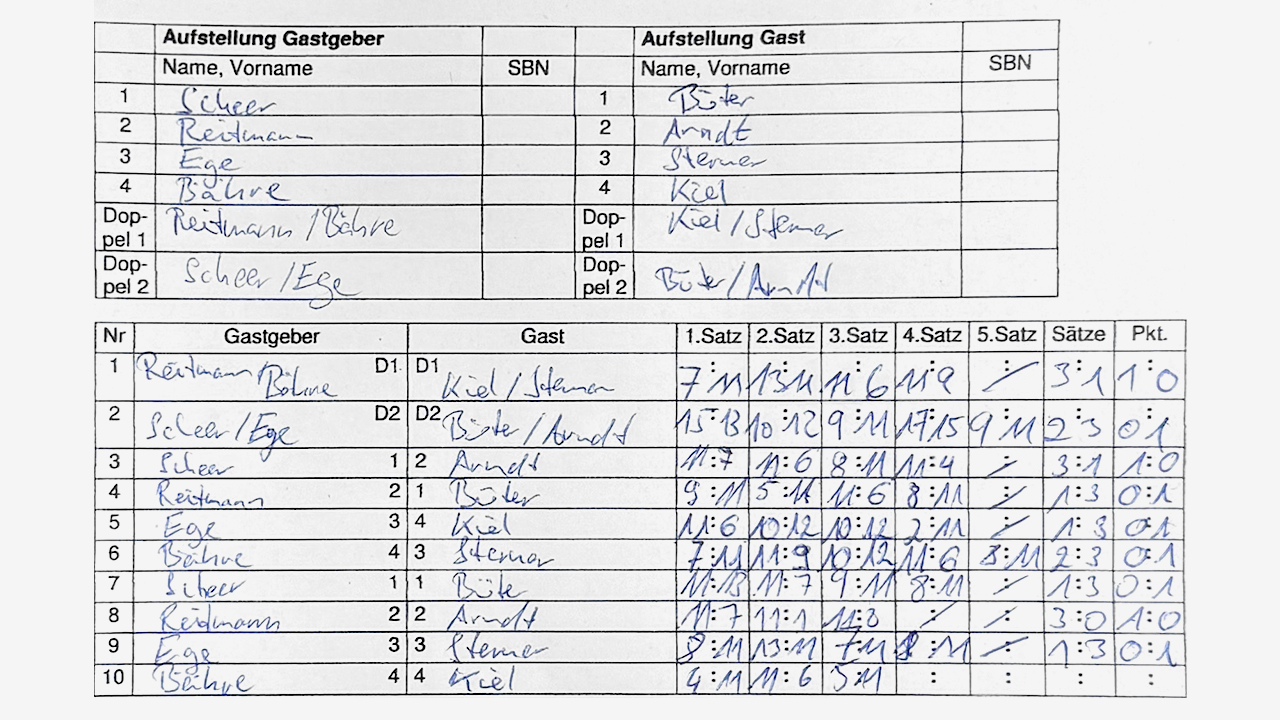 Aufstellung Gastgeber Aufstellung Gast
Name, Vorname SBN Name, Vorname SBN
1 Scheer 1 Büter
2 Reitmann 2 Arndt
3 Ege 3 Sterner
4 Bähre 4 Kiel
Dop-pel 1 Reitmann/Bähre Dop-pel 1 Kiel/Sterner
Dop-pel 2 Scheer/Ege Dop-pel 2 Büter/Arndt
Nr Gastgeber Gast 1.Satz 2.Satz 3.Satz 4.Satz 5.Satz Sätze Pkt.
1 Reitmann/Bähre D1 D1 Kiel/Sterner 7:11 13:11 11:6 11:9 : 3:1 1:0
2 Scheer/Ege D2 D2 Büter/Arndt 15:13 10:12 9:11 17:15 9:11 2:3 0:1
3 Scheer 1 2 Arndt 11:7 11:6 8:11 11:4 : 3:1 1:0
4 Reitmann 2 1 Büter 9:11 5:11 11:6 8:11 : 1:3 0:1
5 Ege 3 4 Kiel 11:6 10:12 10:12 2:11 : 1:3 0:1
6 Bähre 4 3 Sterner 7:11 11:9 10:12 11:6 8:11 2:3 0:1
7 Scheer 1 1 Büter 11:13 11:7 9:11 8:11 : 1:3 0:1
8 Reitmann 2 2 Arndt 11:7 11:1 11:3 : : 3:0 1:0
9 Ege 3 3 Sterner 8:11 13:11 7:11 8:11 : 1:3 0:1
10 Bähre 4 4 Kiel 4:11 11:6 5:11 : : : :